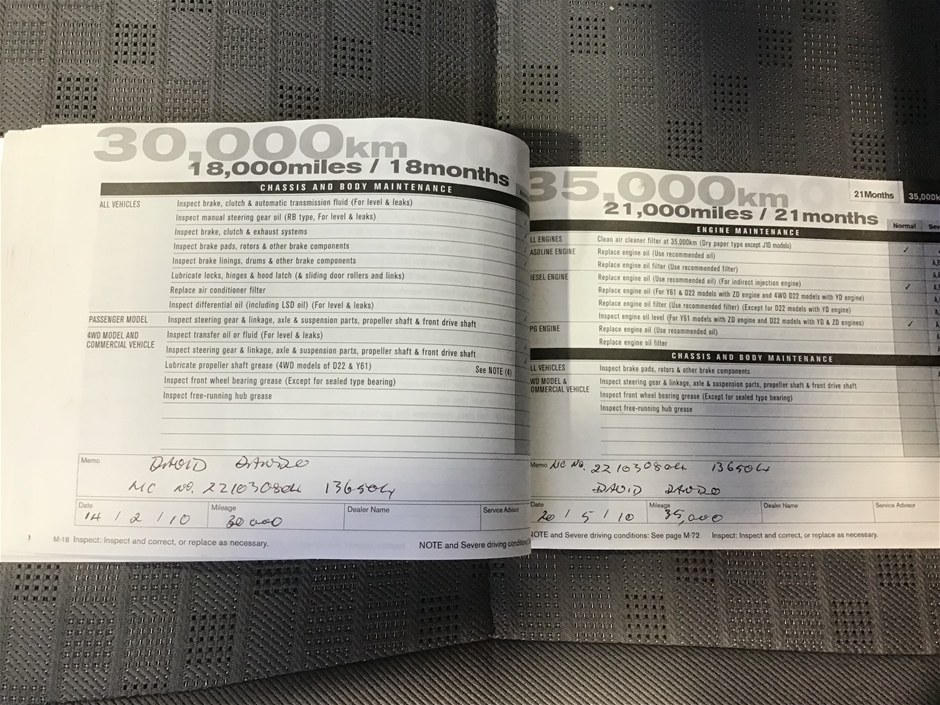 30,000km
18,000miles / 18months
CHASSIS AND BODY MAINTENANCE
ALL VEHICLES Inspect brake, clutch & automatic transmission fluid (For level & leaks)
Inspect manual steering gear oil (RB type, For level & leaks)
Inspect brake, clutch & exhaust systems
Inspect brake pads, rotors & other brake components
Inspect brake linings, drums & other brake components
Lubricate locks, hinges & hood latch (& sliding door rollers and links)
Replace air conditioner filter
Inspect differential oil (including LSD oil) (For level & leaks)
PASSENGER MODEL Inspect steering gear & linkage, axle & suspension parts, propeller shaft & front drive shaft
4WD MODEL AND COMMERCIAL VEHICLE Inspect transfer oil or fluid (For level & leaks)
Inspect steering gear & linkage, axle & suspension parts, propeller shaft & front drive shaft
Lubricate propeller shaft grease (4WD models of D22 & Y61) See NOTE (4)
Inspect front wheel bearing grease (Except for sealed type bearing)
Inspect free-running hub grease
Memo DAVID
MC NO. 2210308
Date 14 / 2 / 10 Mileage 30000 Dealer Name Service Advisor
M-18 Inspect: Inspect and correct, or replace as necessary. NOTE and Severe driving
35,000km
21,000miles / 21months
21Months 35,000
ENGINE MAINTENANCE Normal
LL ENGINES Clean air cleaner filter at 35,000km (Dry paper type except J10 models)
ASOLINE ENGINE Replace engine oil (Use recommended oil) ✓
Replace engine oil filter (Use recommended filter)
IESEL ENGINE Replace engine oil (Use recommended oil) (For indirect injection engine)
Replace engine oil (For Y61 & D22 models with ZD engine and 4WD D22 models with YD engine) ✓
Replace engine oil filter (Use recommended filter) (Except for D22 models with YD engine)
Inspect engine oil level (For Y61 models with ZD engine and D22 models with YD & ZD engines) ✓
PG ENGINE Replace engine oil (Use recommended oil)
Replace engine oil filter
CHASSIS AND BODY MAINTENANCE
LL VEHICLES Inspect brake pads, rotors & other brake components
WD MODEL & COMMERCIAL VEHICLE Inspect steering gear & linkage, axle & suspension parts, propeller shaft & front drive shaft
Inspect front wheel bearing grease (Except for sealed type bearing)
Inspect free-running hub grease
Memo MC NO. 2210308
DAVID
Date 20 / 5 / 10 Mileage 35,000 Dealer Name Service Advisor
NOTE and Severe driving conditions: See page M-72 Inspect: Inspect and correct, or replace as necessary.